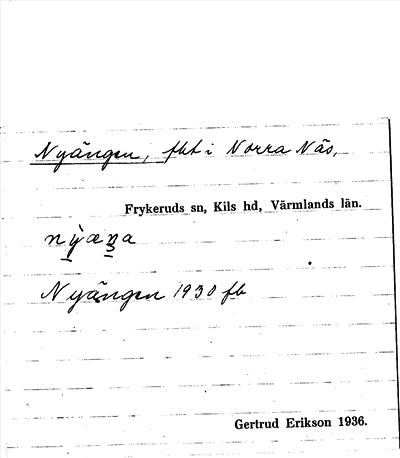 Nyängen, fht i Norra Näs,
Frykeruds sn, Kils hd, Värmlands län.
nỳæŋa
Nyängen 1930 fb
Gertrud Erikson 1936.